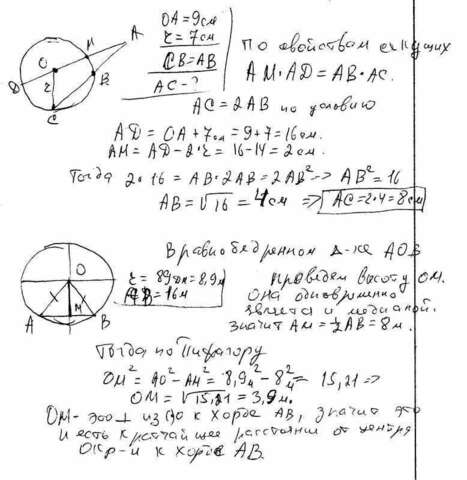 OA = 9 см
r = 7 см
CB = AB
AC - ?
По свойствам секущих
AM · AD = AB · AC.
AC = 2AB по условию
AD = OA + 7см = 9 + 7 = 16 см.
AM = AD - 2·r = 16 - 14 = 2 см.
Тогда 2·16 = AB · 2AB = 2AB² => AB² = 16
AB = √16 = 4 см => AC = 2·4 = 8 см
A
M
O
B
D
r
C
В равнобедренном Δ-ке AOB
проведем высоту OM.
Она одновременно
является и медианой.
Значит AM = ½AB = 8 м.
r = 89дм = 8,9 м
AB = 16 м
O
A
M
B
Тогда по Пифагору
OM² = AO² - AM² = 8,9² - 8² = 15,21 =>
OM = √15,21 = 3,9 м.
OM - это ⊥ из (·)O к хорде AB, значит это
и есть кратчайшее расстояние от центра
окр-и к хорде AB.